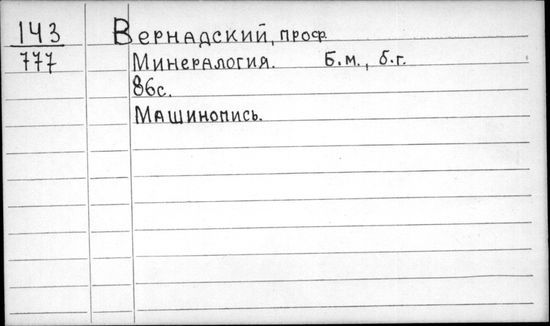 143
777
Вернадский, проф
Минералогия. Б.м., б.г.
86с.
Машинопись.